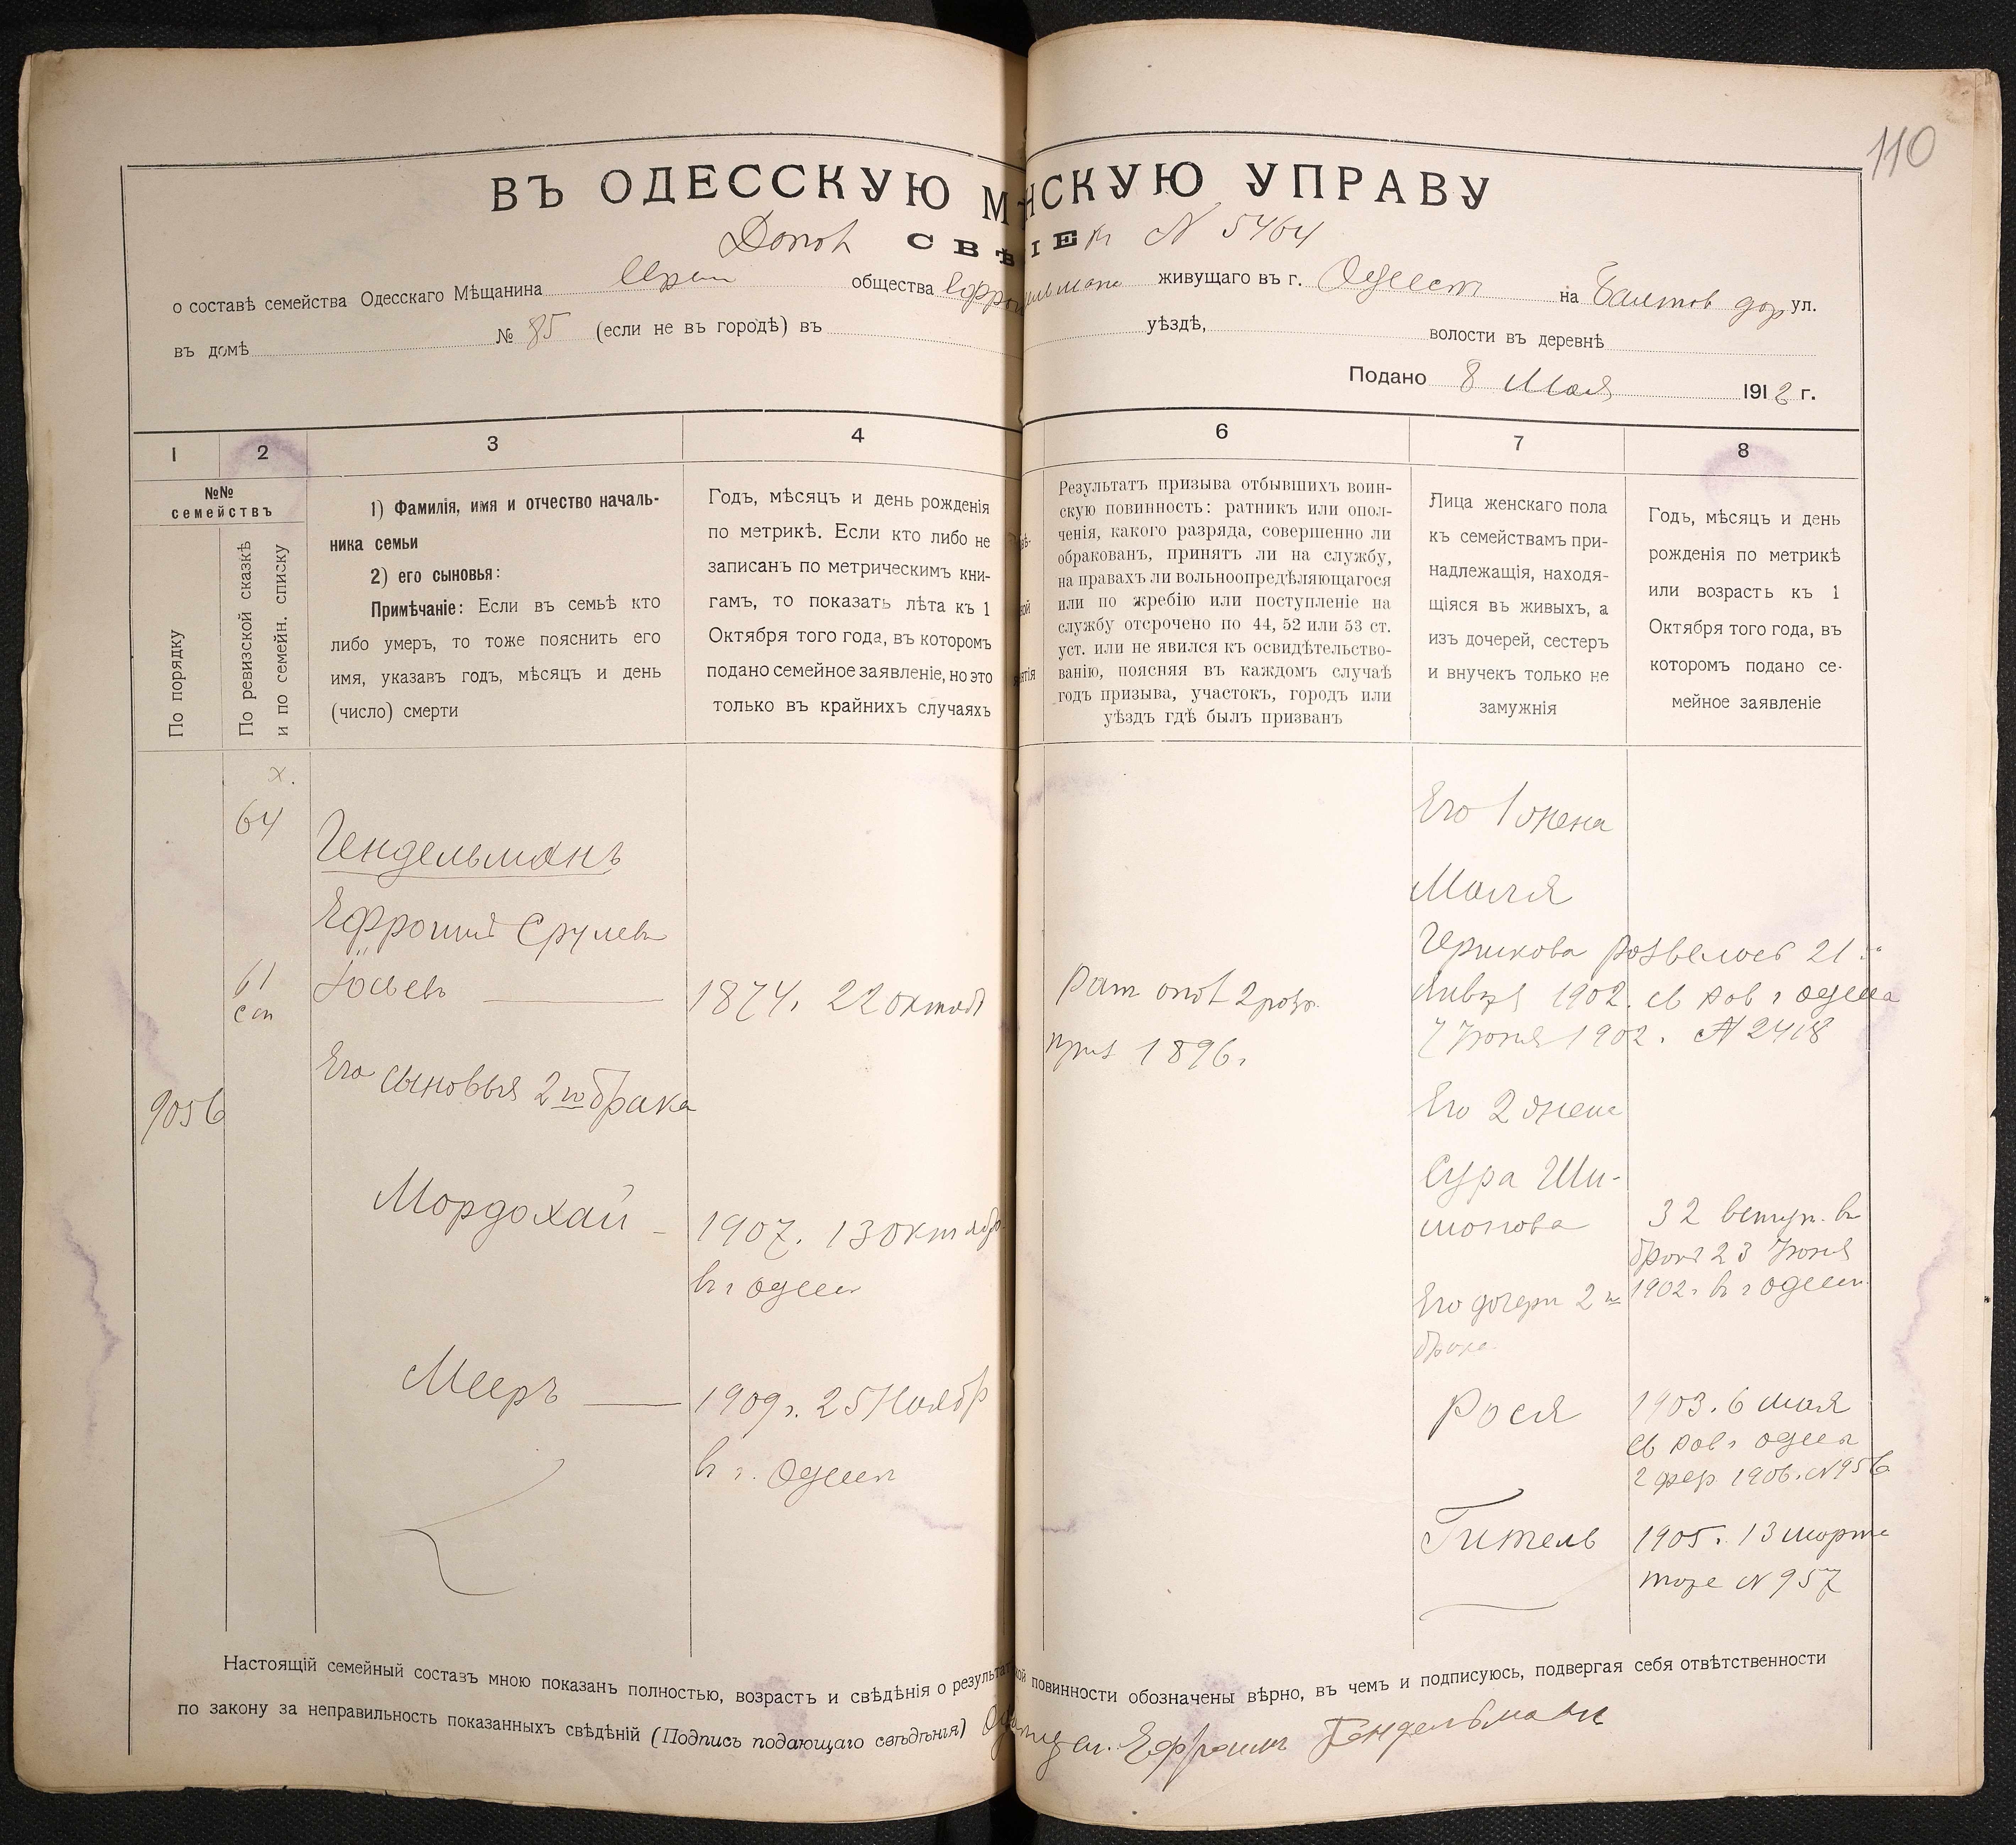 110
ВЪ ОДЕССКУЮ М НСКУЮ УПРАВУ
СВѢ ІЕ № 5464
о составѣ семейства Одесскаго Мѣщанина общества живущаго въ г. Одессѣ на Балтов дор ул.
въ домѣ № 85 (если не въ городѣ) въ уѣздѣ, волости въ деревнѣ
Подано 8 Мая 1912 г.
1 2 3 4 6 7 8
№№ семействъ
По порядку
По ревизской сказкѣ
и по семейн. списку
1) Фамилія, имя и отчество началь-
ника семьи
2) его сыновья:
Примѣчаніе: Если въ семьѣ кто
либо умеръ, то тоже пояснить его
имя, указавъ годъ, мѣсяцъ и день
(число) смерти
Годъ, мѣсяцъ и день рожденія
по метрикѣ. Если кто либо не
записанъ по метрическимъ кни-
гамъ, то показать лѣта къ 1
Октября того года, въ которомъ
подано семейное заявленіе, но это
только въ крайнихъ случаяхъ
Результатъ призыва отбывшихъ воин-
скую повинность: ратникъ или опол-
ченія, какого разряда, совершенно ли
обракованъ, принятъ ли на службу,
на правахъ ли вольноопредѣляющагося
или по жребію или поступленіе на
службу отсрочено по 44, 52 или 53 ст.
уст. или не явился къ освидѣтельство-
ванію, поясняя въ каждомъ случаѣ
годъ призыва, участокъ, городъ или
уѣздъ гдѣ былъ призванъ
Лица женскаго пола
къ семействамъ при-
надлежащія, находя-
щіяся въ живыхъ, а
изъ дочерей, сестеръ
и внучекъ только не
замужнія
Годъ, мѣсяцъ и день
рожденія по метрикѣ
или возрастъ къ 1
Октября того года, въ
которомъ подано се-
мейное заявленіе
х.
64
Гендельманъ
Ефроимъ Срулев
61
сп
Іосьевъ 1874. 22 октяб
Его сыновья 2го брака
9056
Мордохай 1907. 13 октябр
в г Одесс
Мееръ 1909 г. 25 Ноябр
в г. Одессе
Рат опол 2 разр.
приз 1896 г.
Его 1 жена
Маля
Гершкова Розвелось 21
Января 1902. св Рав г Одесса
7 Июня 1902. № 2418
Его 2 жена
Сура Ши-
монова
32 вступ. в
брак 23 Июня
1902 г в г Одессе
Его дочери 2го
брака
Рося 1903. 6 мая
св Рав г Одесса
2 фев 1906. № 956
Гитель 1905 г. 13 марта
тоже № 957
Настоящій семейный составъ мною показанъ полностью, возрастъ и свѣдѣнія о результат ой повинности обозначены вѣрно, въ чемъ и подписуюсь, подвергая себя отвѣтственности
по закону за неправильность показанныхъ свѣдѣній (Подпись подающаго свѣдѣнія) Ефроимъ Гендельманъ